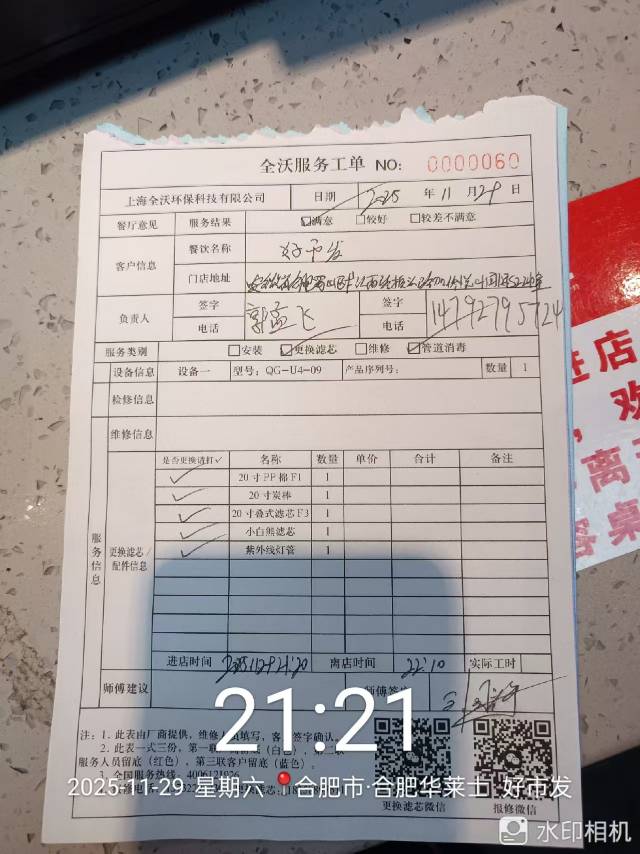 全沃服务工单 NO: 0000060
上海全沃环保科技有限公司 日期 2025 年 11 月 29 日
餐厅意见 服务结果 ☑满意 □较好 □较差不满意
客户信息 餐饮名称 好市发
门店地址
负责人 签字 郭孟飞 签字
电话 电话 14792795724
服务类别 □安装 ☑更换滤芯 □维修 ☑管道消毒
设备信息 设备一 型号: QG-U4-09 产品序列号: 数量 1
检修信息
维修信息
服务信息
更换滤芯/配件信息
是否更换请打✓ 名称 数量 单价 合计 备注
✓ 20寸PP棉F1 1
✓ 20寸炭棒 1
✓ 20寸叠式滤芯F3 1
✓ 小白熊滤芯 1
✓ 紫外线灯管 1
进店时间 2025.11.29 21:20 离店时间 22:10 实际工时
师傅建议 师傅签
注: 1. 此表由厂商提供, 维修 填写, 客 签字确认。
2. 此表一式三份, 第一联 (白色), 第二联
服务人员留底(红色), 第三联客户留底(蓝色)。
3. 全国服务热线: 4006121926
更换滤芯微信 报修微信
21:21
2025-11-29 星期六 合肥市·合肥华莱士 好市发
水印相机
进店
, 欢
离
客桌